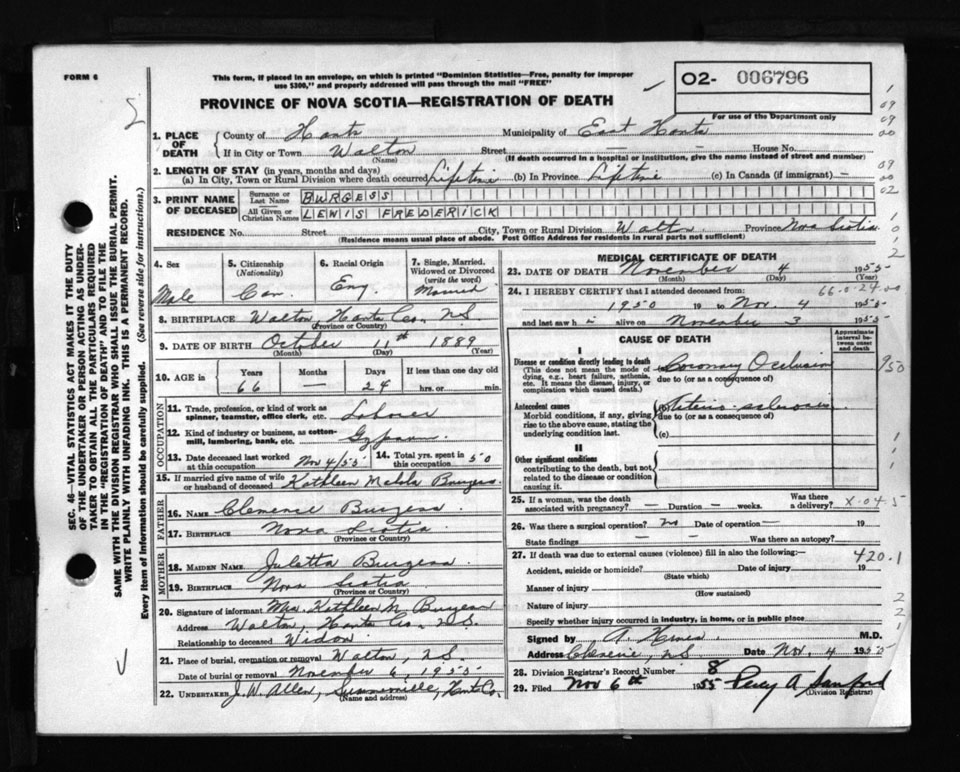 FORM 6
This form, if placed in an envelope, on which is printed "Dominion Statistics—Free, penalty for improper
use $300," and properly addressed will pass through the mail "FREE"
02- 006796
For use of the Department only
PROVINCE OF NOVA SCOTIA—REGISTRATION OF DEATH
1. PLACE OF DEATH
County of Hants Municipality of East Hants
If in City or Town Walton Street — House No. —
(Name) (If death occurred in a hospital or institution, give the name instead of street and number)
2. LENGTH OF STAY (in years, months and days)
(a) In City, Town or Rural Division where death occurred Lifetime (b) In Province Lifetime (c) In Canada (if immigrant) —
3. PRINT NAME OF DECEASED
Surname or Last Name BURGESS
All Given or Christian Names LEWIS FREDERICK
RESIDENCE No. Street City, Town or Rural Division Walton Province Nova Scotia
(Residence means usual place of abode. Post Office Address for residents in rural parts not sufficient)
4. Sex Male
5. Citizenship (Nationality) Can.
6. Racial Origin Eng.
7. Single, Married, Widowed or Divorced (write the word) Married
8. BIRTHPLACE Walton, Hants Co., N.S.
(Province or Country)
9. DATE OF BIRTH October 11th 1889
(Month) (Day) (Year)
10. AGE in Years 66 Months — Days 24 If less than one day old hrs. or min.
OCCUPATION
11. Trade, profession or kind of work as spinner, teamster, office clerk, etc. Laborer
12. Kind of industry or business, as cotton-mill, lumbering, bank, etc.
13. Date deceased last worked at this occupation Nov 4/55 14. Total yrs. spent in this occupation 50
15. If married give name of wife or husband of deceased Kathleen Burgess
FATHER
16. NAME Clemence Burgess
17. BIRTHPLACE Nova Scotia
(Province or Country)
MOTHER
18. MAIDEN NAME Juletta Burgess
19. BIRTHPLACE Nova Scotia
(Province or Country)
20. Signature of informant Mrs. Kathleen M. Burgess
Address Walton, Hants Co., N.S.
Relationship to deceased Widow
21. Place of burial, cremation or removal Walton, N.S.
Date of burial or removal November 6, 1955
22. UNDERTAKER J.W. Allen, Summerville, Hants Co.
(Name and address)
MEDICAL CERTIFICATE OF DEATH
23. DATE OF DEATH November 4 1955
(Month) (Day) (Year)
66-0-24-00
24. I HEREBY CERTIFY that I attended deceased from:
1950 19 to Nov. 4 1955
and last saw h i alive on November 3 1955
CAUSE OF DEATH
Approximate interval between onset and death
I
Disease or condition directly leading to death
(This does not mean the mode of dying, e.g., heart failure, asthenia, etc. It means the disease, injury, or complication which caused death.)
(a) Coronary Occlusion 950
due to (or as a consequence of)
Antecedent causes
Morbid conditions, if any, giving rise to the above cause, stating the underlying condition last.
(b) Arterio-sclerosis
due to (or as a consequence of)
(c)
II
Other significant conditions
contributing to the death, but not related to the disease or condition causing it.
25. If a woman, was the death associated with pregnancy? — Duration — weeks. Was there a delivery? X-04-5
26. Was there a surgical operation? no Date of operation — 19
State findings — — Was there an autopsy?
27. If death was due to external causes (violence) fill in also the following:— 420.1
Accident, suicide or homicide? Date of injury 19
(State which)
Manner of injury
(How sustained)
Nature of injury
Specify whether injury occurred in industry, in home, or in public place
Signed by M.D.
Address N.S. Date Nov. 4 1955
28. Division Registrar's Record Number 8
29. Filed Nov 6th 1955 Percy A Sanford
(Division Registrar)
SEC. 46—VITAL STATISTICS ACT MAKES IT THE DUTY
OF THE UNDERTAKER OR PERSON ACTING AS UNDER-
TAKER TO OBTAIN ALL THE PARTICULARS REQUIRED
IN THE "REGISTRATION OF DEATH" AND TO FILE THE
SAME WITH THE DIVISION REGISTRAR WHO SHALL ISSUE THE BURIAL PERMIT.
WRITE PLAINLY WITH UNFADING INK. THIS IS A PERMANENT RECORD.
Every item of information should be carefully supplied. (See reverse side for instructions.)